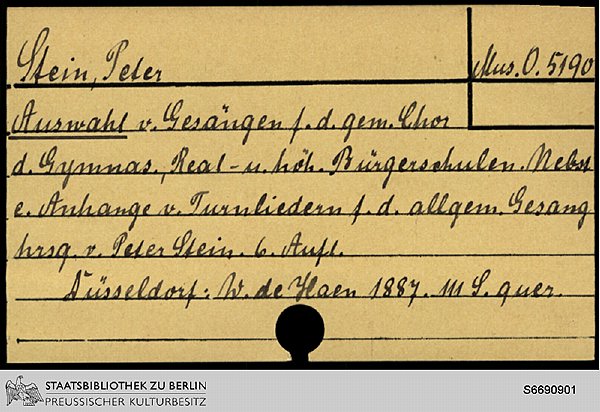 Stein, Peter
Mus. O. 5190
Auswahl v. Gesängen f. d. gem. Chor
d. Gymnas., Real- u. höh. Bürgerschulen. Nebst
e. Anhange v. Turnliedern f. d. allgem. Gesang
hrsg. v. Peter Stein. 6. Aufl.
Düsseldorf: W. de Haen 1887. 111 S. quer.
STAATSBIBLIOTHEK ZU BERLIN
PREUSSISCHER KULTURBESITZ
S6690901